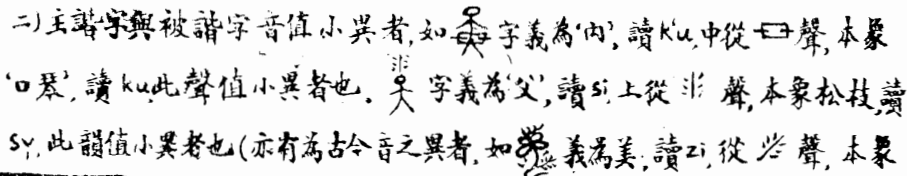 二)主諧字與被諧字音值小異者,如字義為‘內’,讀k'u,中從聲,本象
‘口琴’,讀ku,此聲值小異者也.字義為‘父’,讀si,上從聲,本象松枝,讀
sy,此韻值小異者也(亦有為古今音之異者,如義為美,讀zi,從聲,本象